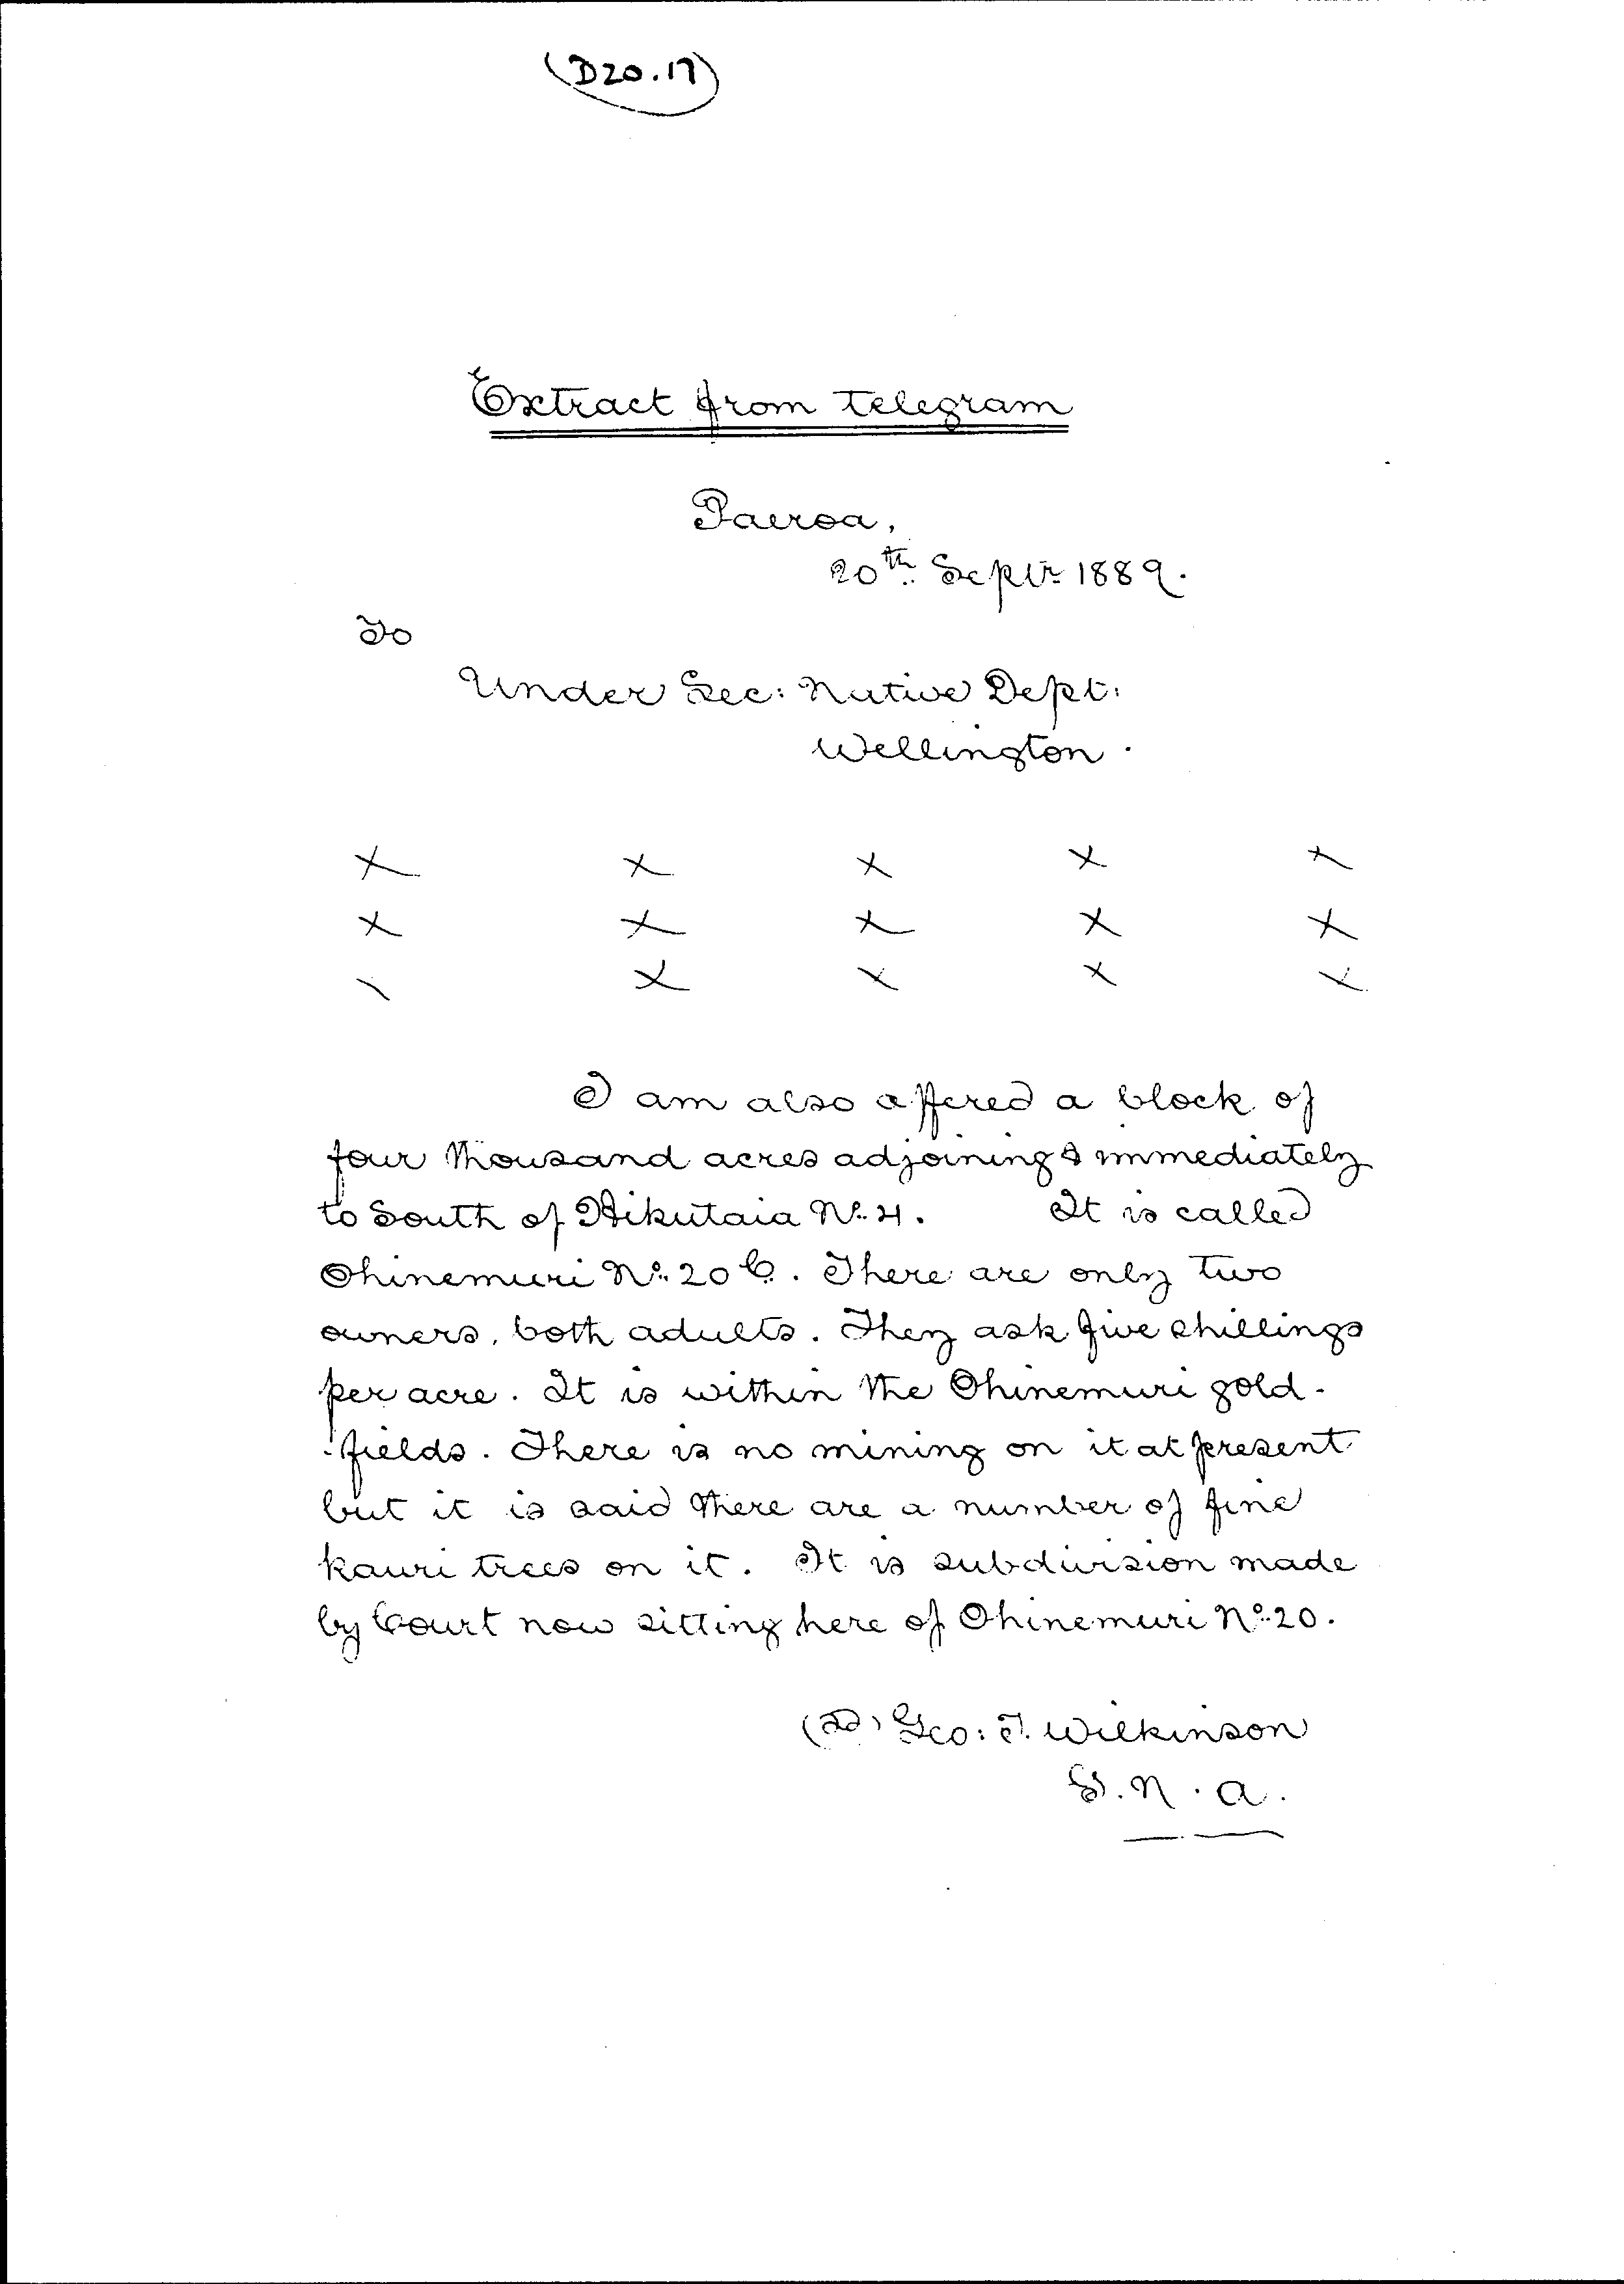 (D20.17)
Extract from telegram
Paeroa,
20th Septr 1889.
To
Under Sec: Native Dept:
Wellington.
x x x x x
x x x x x
\ x x x x
I am also offered a block of
four thousand acres adjoining & immediately
to South of Hikutaia No. 4. It is called
Ohinemuri No. 20 C. There are only two
owners, both adults. They ask five shillings
per acre. It is within the Ohinemuri gold-
fields. There is no mining on it at present
but it is said there are a number of fine
kauri trees on it. It is subdivision made
by Court now sitting here of Ohinemuri No. 20.
(Sd) Geo: T. Wilkinson
G. N. A.